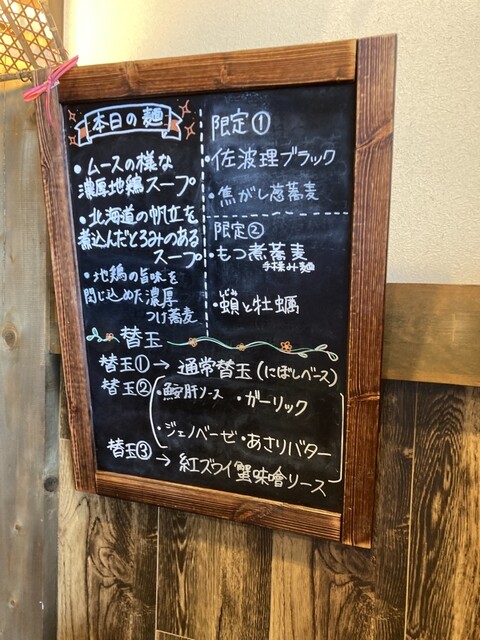 本日の麺
・ムースの様な
濃厚地鶏スープ
・北海道の帆立を
煮込んだとろみのある
スープ
・地鶏の旨味を
閉じ込めた濃厚
つけ蕎麦
限定①
・佐波理ブラック
・焦がし葱蕎麦
限定②
・もつ煮蕎麦
手揉み麺
・蜆と牡蠣
替玉
替玉① → 通常替玉(にぼしベース)
替玉②
・鮟肝ソース ・ガーリック
・ジェノベーゼ・あさりバター
替玉③
→ 紅ズワイ蟹味噌ソース